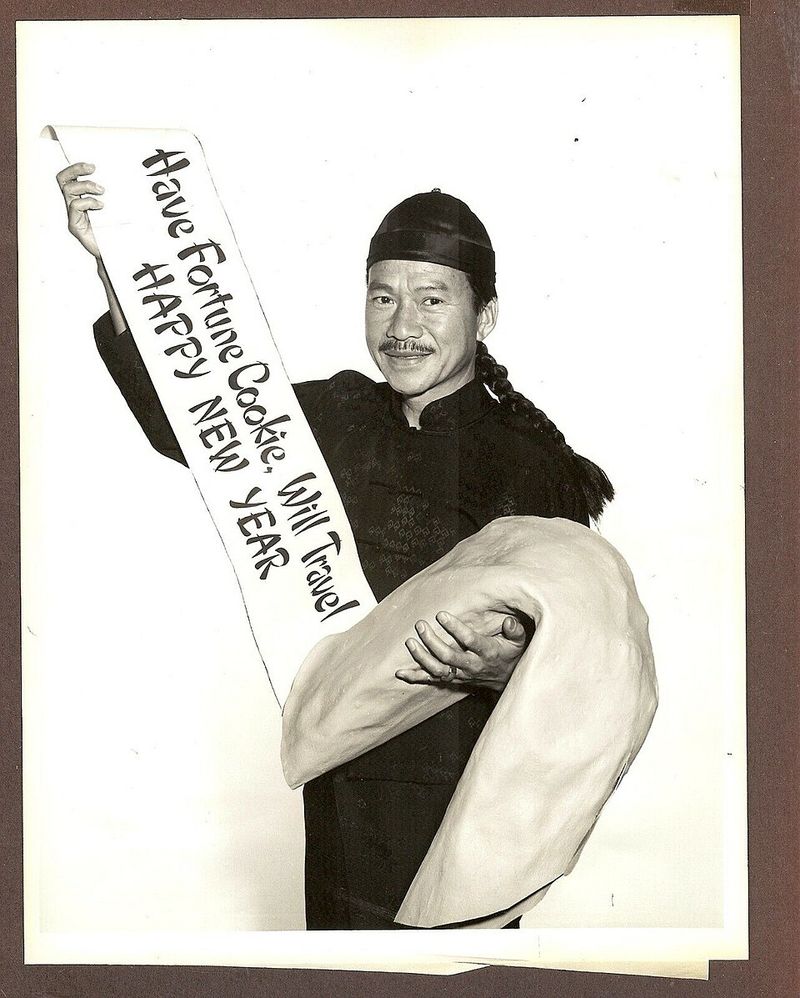 Have Fortune Cookie, Will Travel
HAPPY NEW YEAR